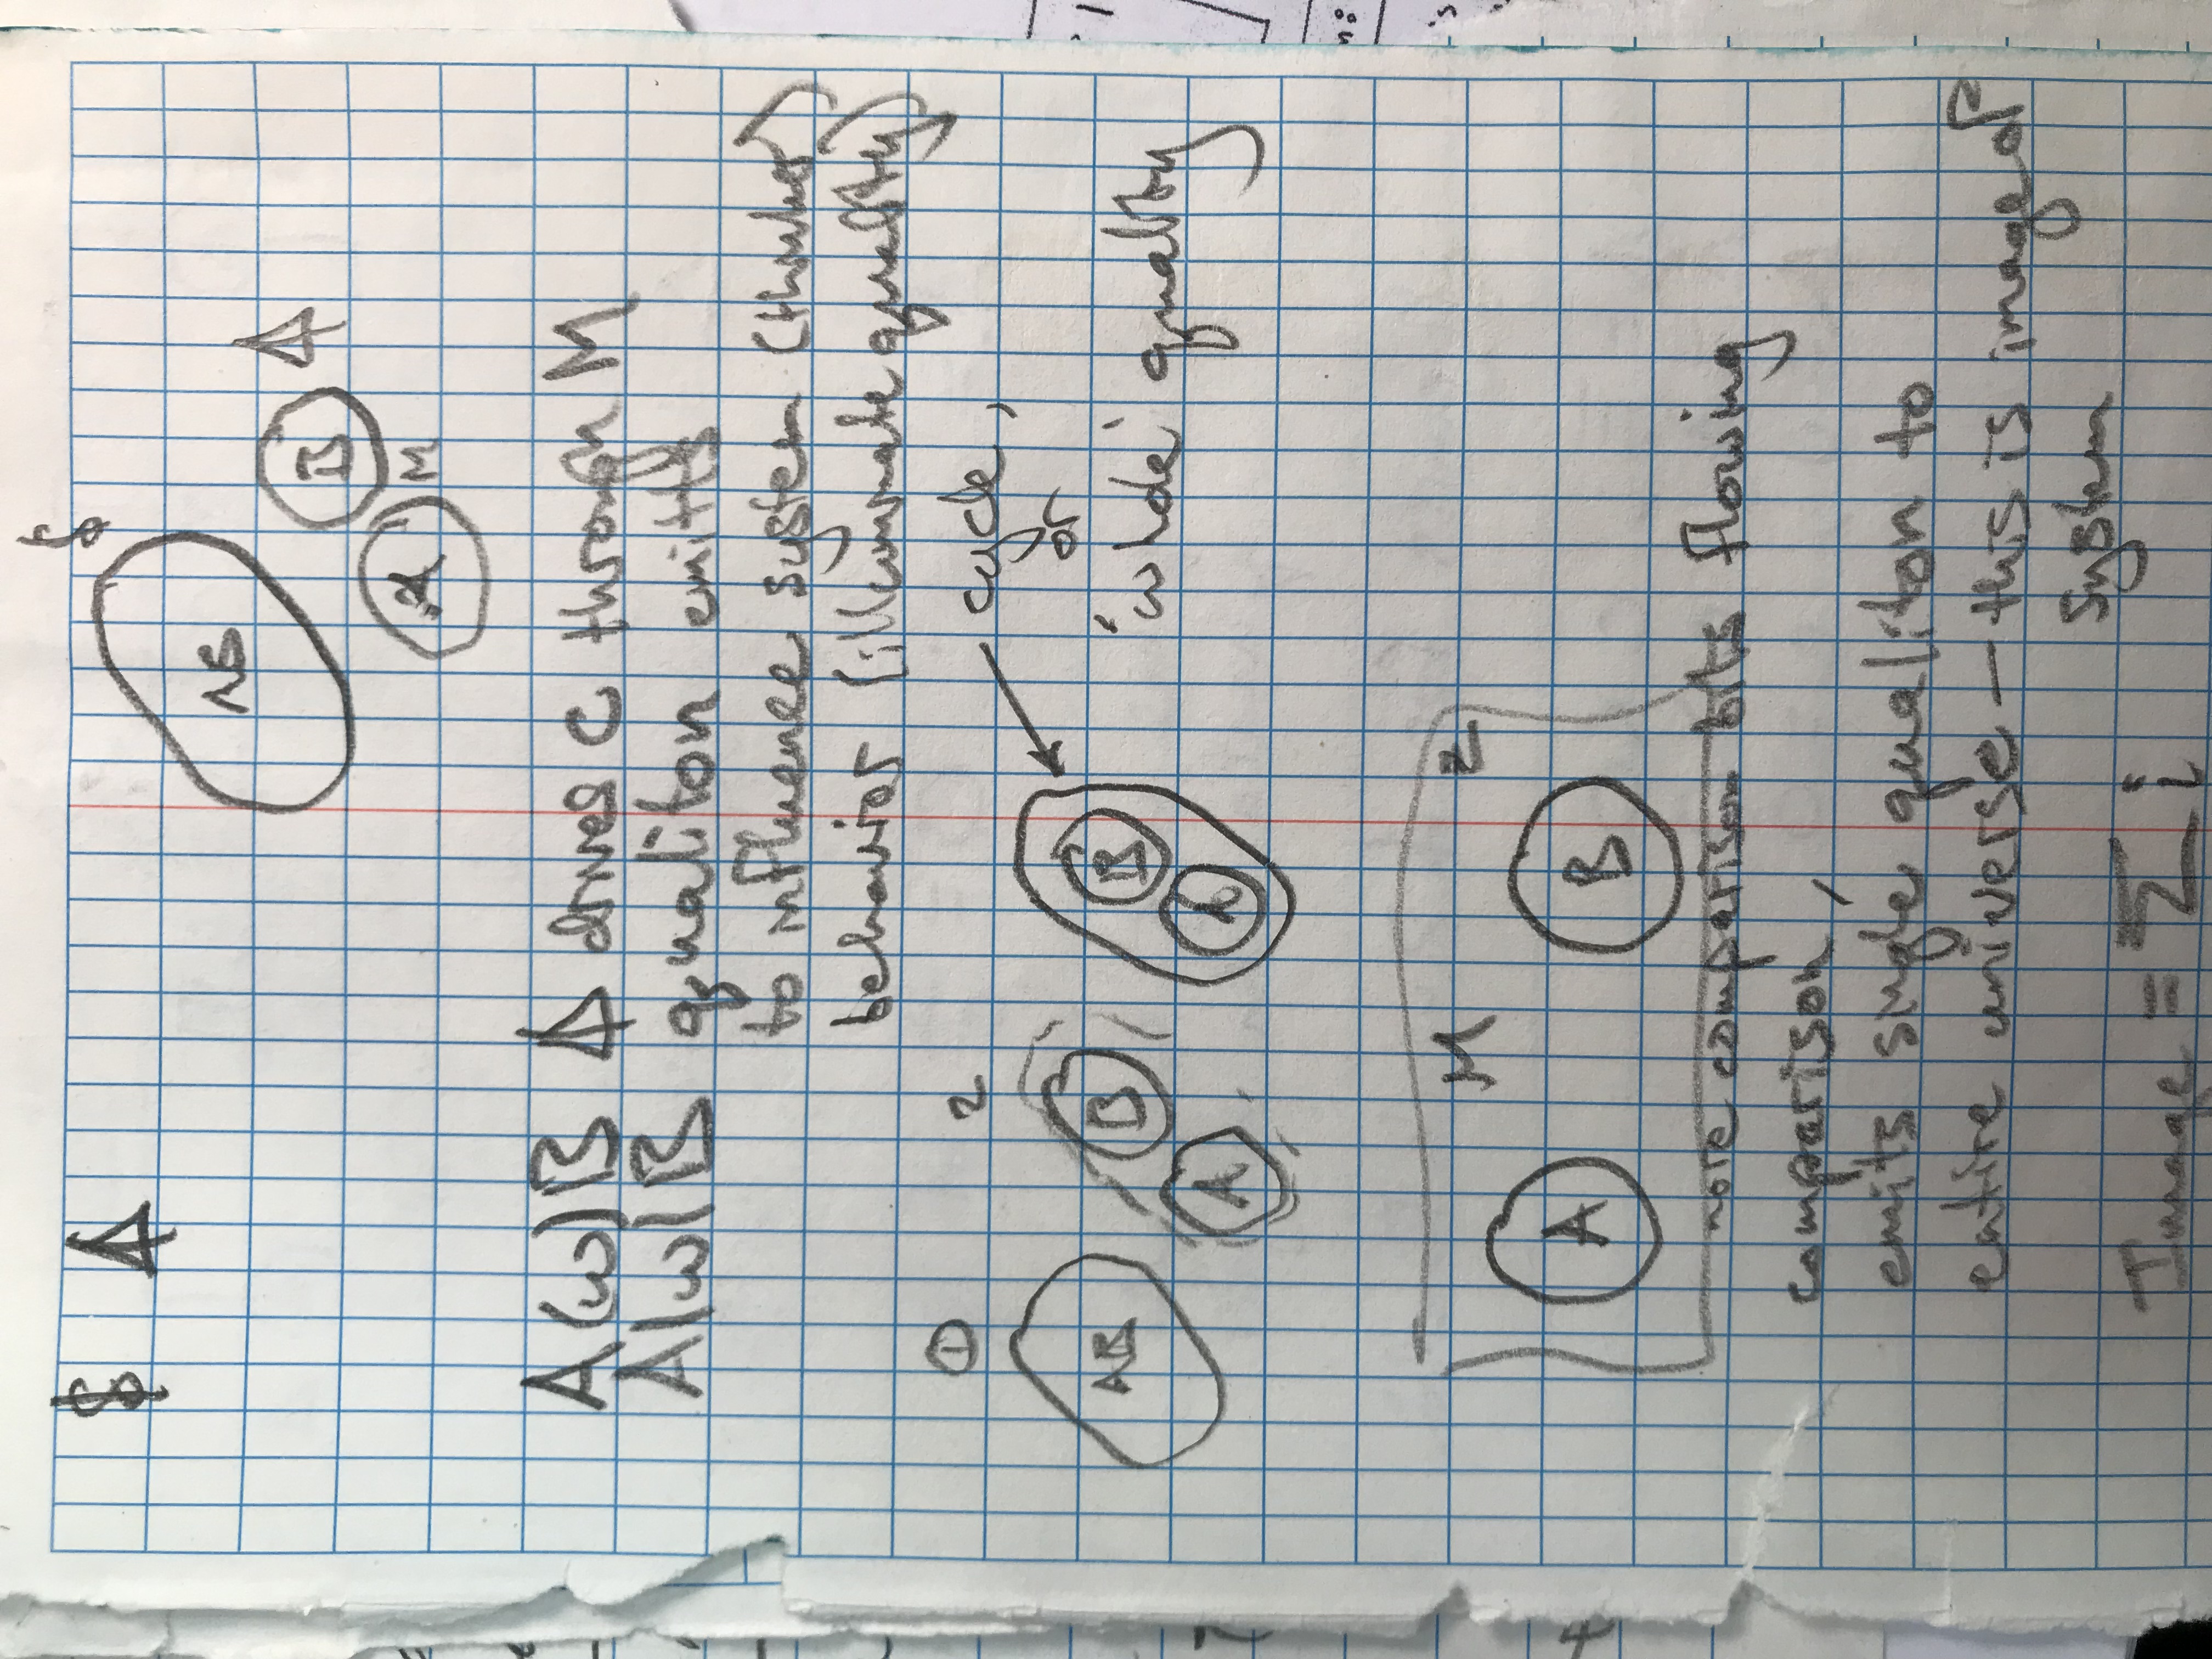 $
$
AB
B
A
M
A(ω)B drives C through M
A|ω|B qualiton emitts
to influence system (thinker)
behavior (illuminate quality)
① 2
cycle,
or
'whole' quality
AB B B
A A
M Z
A B
note comparison bits flowing
comparison,
emits single qualiton to
entire universe — this is image of
system
Image = Σ i